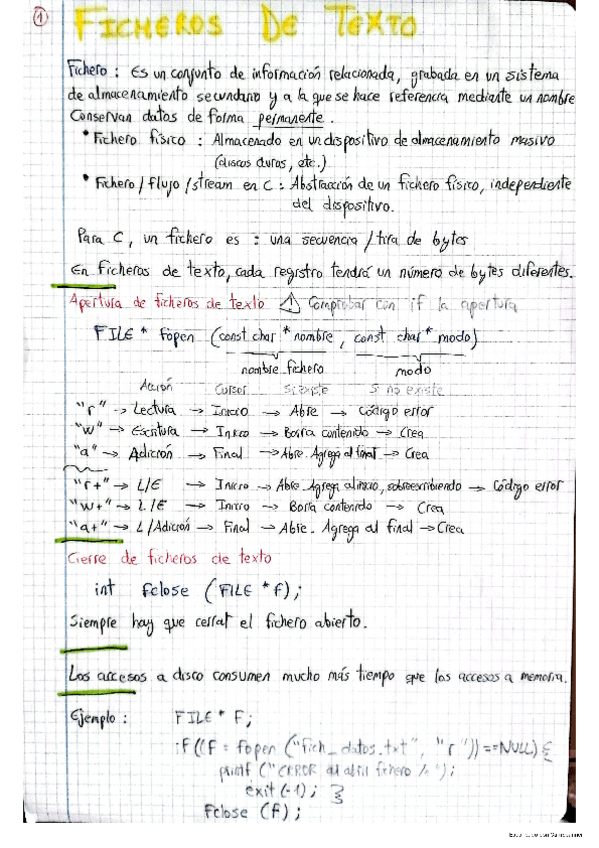 1
FICHEROS DE TEXTO
Fichero : Es un conjunto de información relacionada, grabada en un sistema
de almacenamiento secundario y a la que se hace referencia mediante un nombre
Conservan datos de forma permanente.
* Fichero físico : Almacenado en un dispositivo de almacenamiento masivo
(discos duros, etc.)
* Fichero / flujo / stream en C : Abstracción de un fichero físico, independiente
del dispositivo.
Para C, un fichero es : una secuencia / tira de bytes
En ficheros de texto, cada registro tendrá un número de bytes diferentes.
Apertura de ficheros de texto ⚠ Comprobar con if la apertura
FILE * fopen (const char * nombre, const char * modo)
nombre fichero modo
Acción Cursor Si existe Si no existe
"r" -> Lectura -> Inicio -> Abre -> Código error
"w" -> Escritura -> Inicio -> Borra contenido -> Crea
"a" -> Adición -> Final -> Abre. Agrega al final -> Crea
"r+" -> L/E -> Inicio -> Abre. Agrega al inicio, sobreescribiendo -> Código error
"w+" -> L/E -> Inicio -> Borra contenido -> Crea
"a+" -> L/Adición -> Final -> Abre. Agrega al final -> Crea
Cierre de ficheros de texto
int fclose (FILE * f);
Siempre hay que cerrar el fichero abierto.
Los accesos a disco consumen mucho más tiempo que los accesos a memoria.
Ejemplo : FILE * F;
if ((F = fopen ("fich_datos.txt", "r")) == NULL) {
printf ("ERROR al abrir fichero
exit (-1) ; }
fclose (f) ;